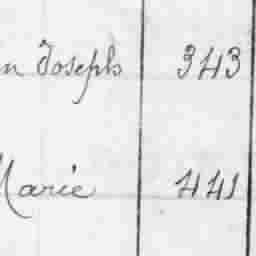 n Joseph 343
Marie 441